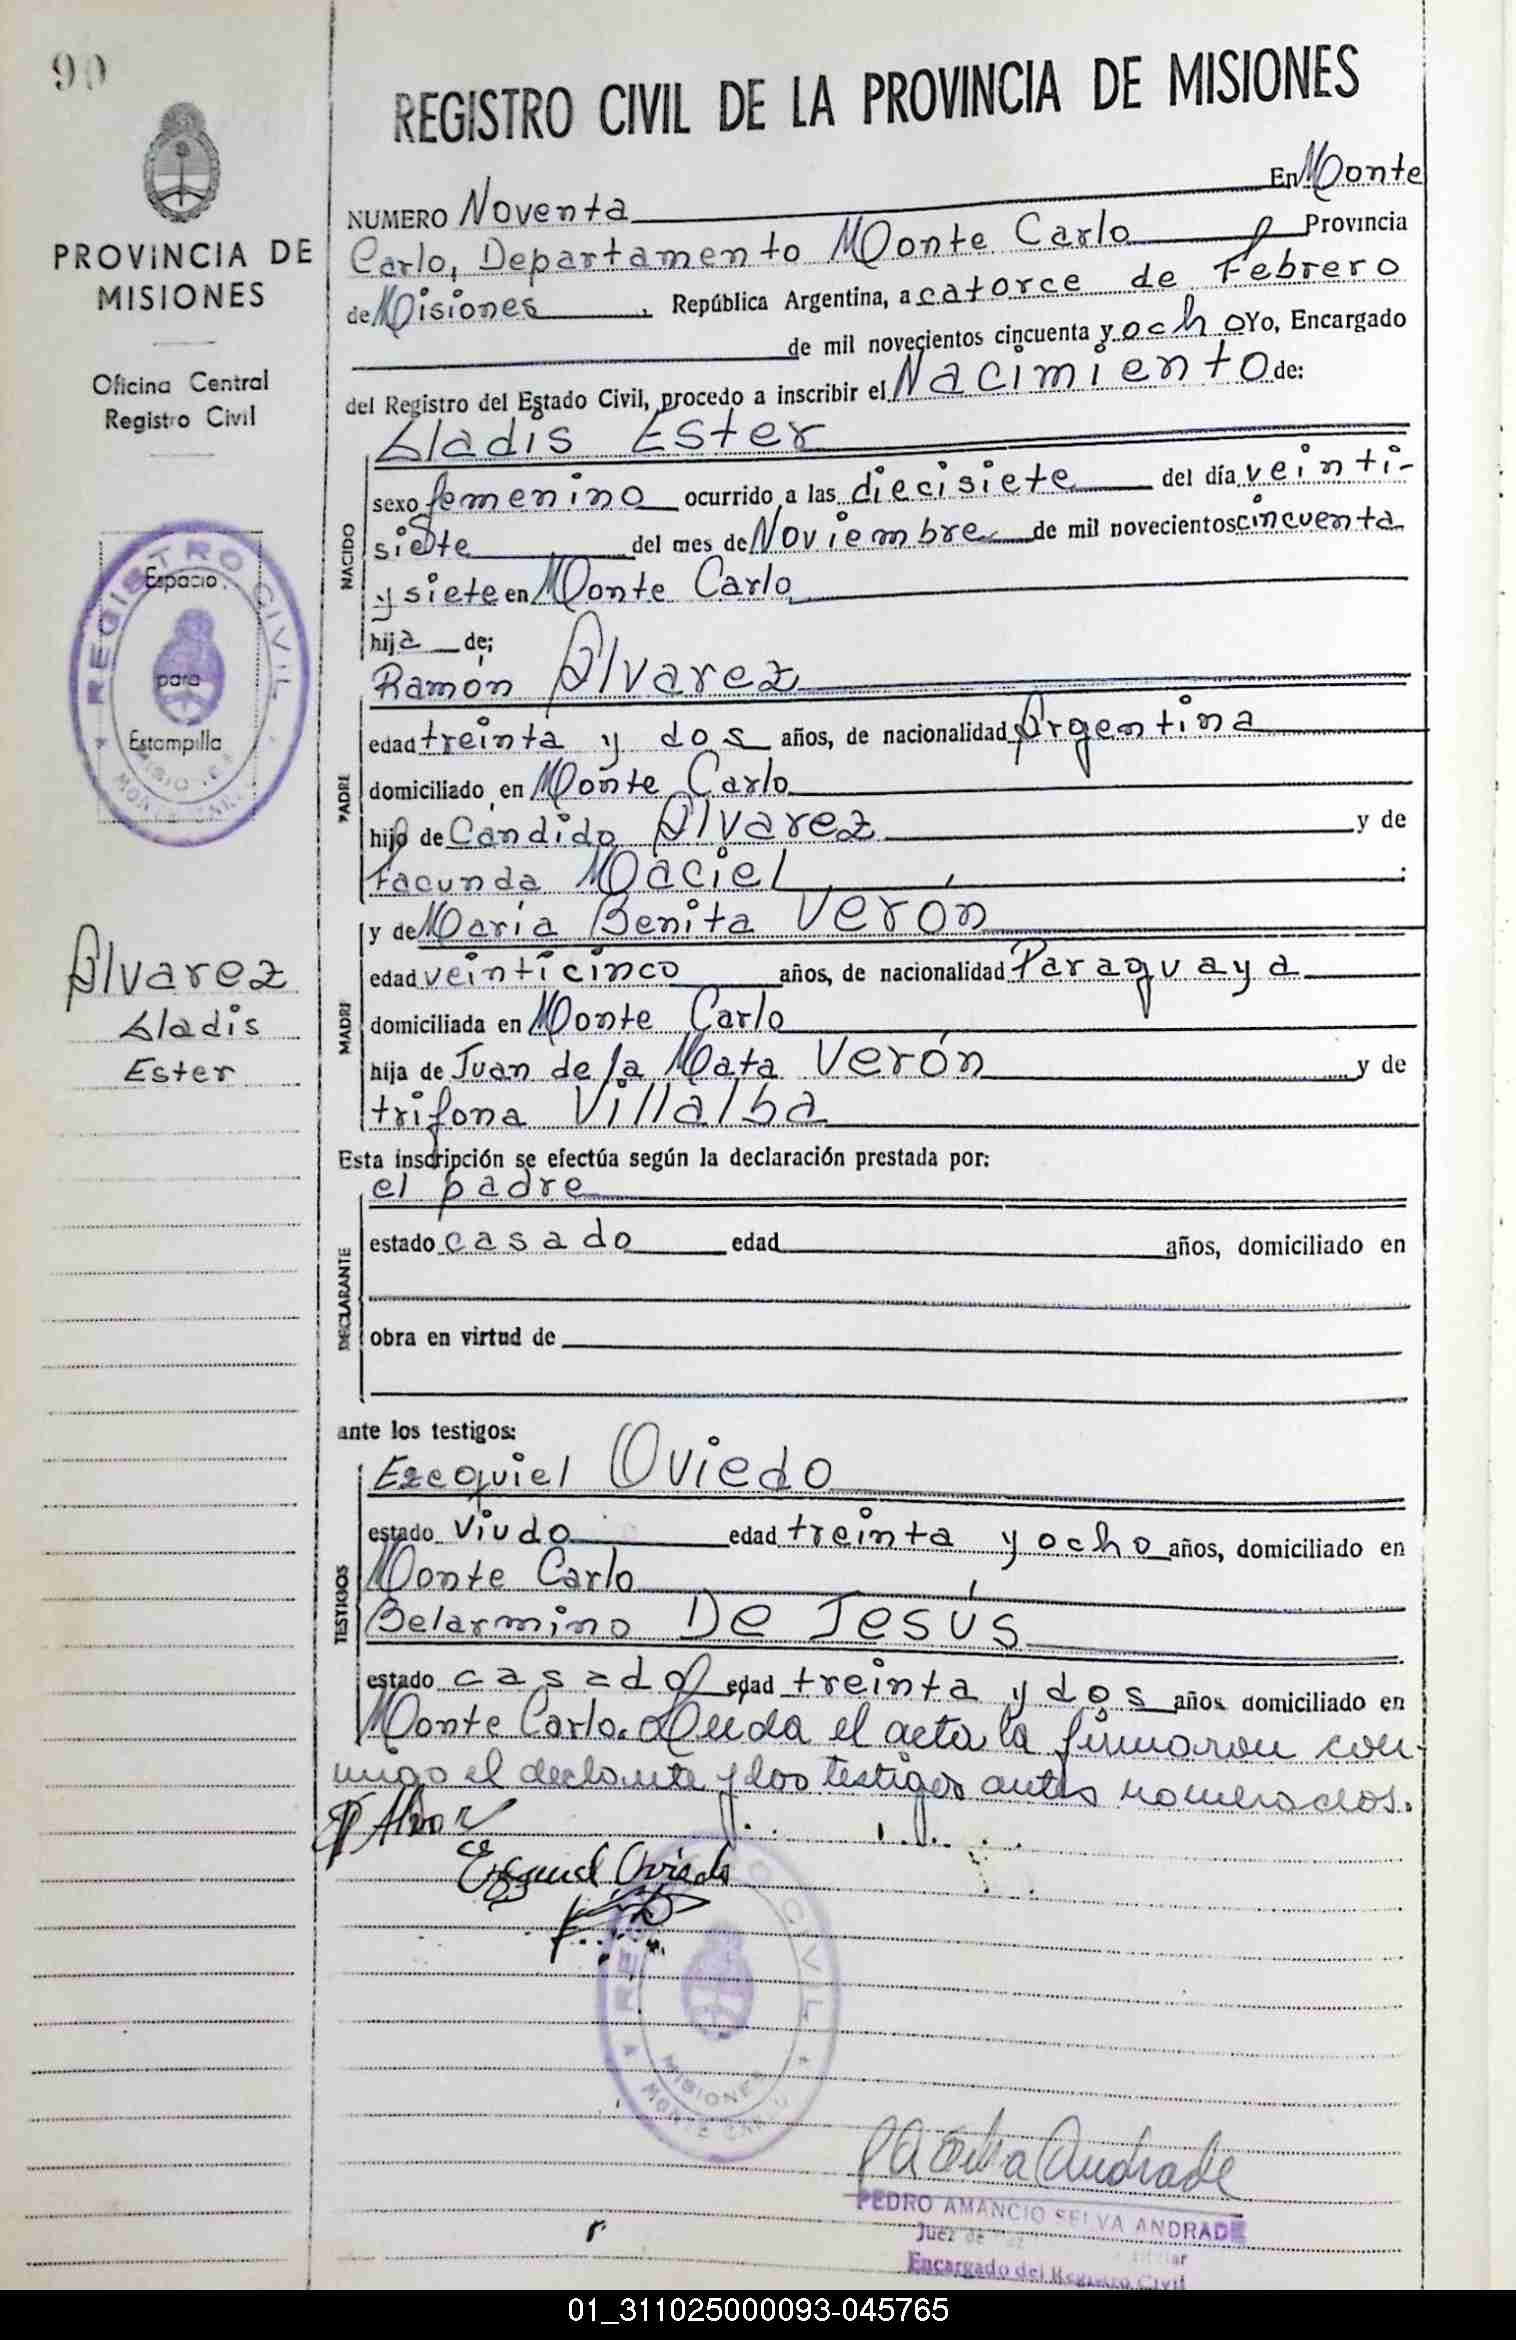 90
PROVINCIA DE
MISIONES
Oficina Central
Registro Civil
REGISTRO CIVIL
Espacio
para
Estampilla
MISIONES
MONTE CARLO
Alvarez
Gladis
Ester
REGISTRO CIVIL DE LA PROVINCIA DE MISIONES
NUMERO Noventa En Monte
Carlo, Departamento Monte Carlo Provincia
de Misiones, República Argentina, a catorce de Febrero
de mil novecientos cincuenta y ocho Yo, Encargado
del Registro del Estado Civil, procedo a inscribir el Nacimiento de:
Gladis Ester
NACIDO
sexo femenino ocurrido a las diecisiete del día veinti-
siete del mes de Noviembre de mil novecientos cincuenta
y siete en Monte Carlo
hija de;
Ramón Alvarez
PADRE
edad treinta y dos años, de nacionalidad Argentina
domiciliado en Monte Carlo
hijo de Candido Alvarez y de
Facunda Maciel.
y de María Benita Verón
MADRE
edad veinticinco años, de nacionalidad Paraguaya
domiciliada en Monte Carlo
hija de Juan de la Mata Verón y de
trifona Villalba
Esta inscripción se efectúa según la declaración prestada por:
el padre
DECLARANTE
estado casado edad años, domiciliado en
obra en virtud de
ante los testigos:
Ezequiel Oviedo
TESTIGOS
estado viudo edad treinta y ocho años, domiciliado en
Monte Carlo
Belarmino De Jesús
estado casado edad treinta y dos años domiciliado en
Monte Carlo. Leida el acta la firmaron con-
migo el declarante y los testigos antes nombrados.
Ezequiel Oviedo
REGISTRO CIVIL
MISIONES
MONTE CARLO
Andrade
PEDRO AMANCIO SELVA ANDRADE
Juez de Paz Titular
Encargado del Registro Civil
01_311025000093-045765